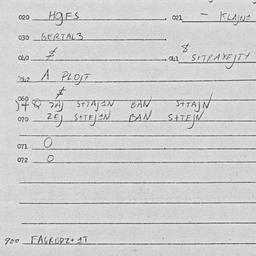 020 HGES 021 — KLAJN1
030 BERTAL3
040 $ 041 $ S+TRAXEJTY
042 A PLOJT
060 $
ZAJ S+TAJ1N BAN S+TAJN
070 ZEJ S+TEJ1N BAN S+TEJN
071 0
072 0
900 FAGRODZ+1T